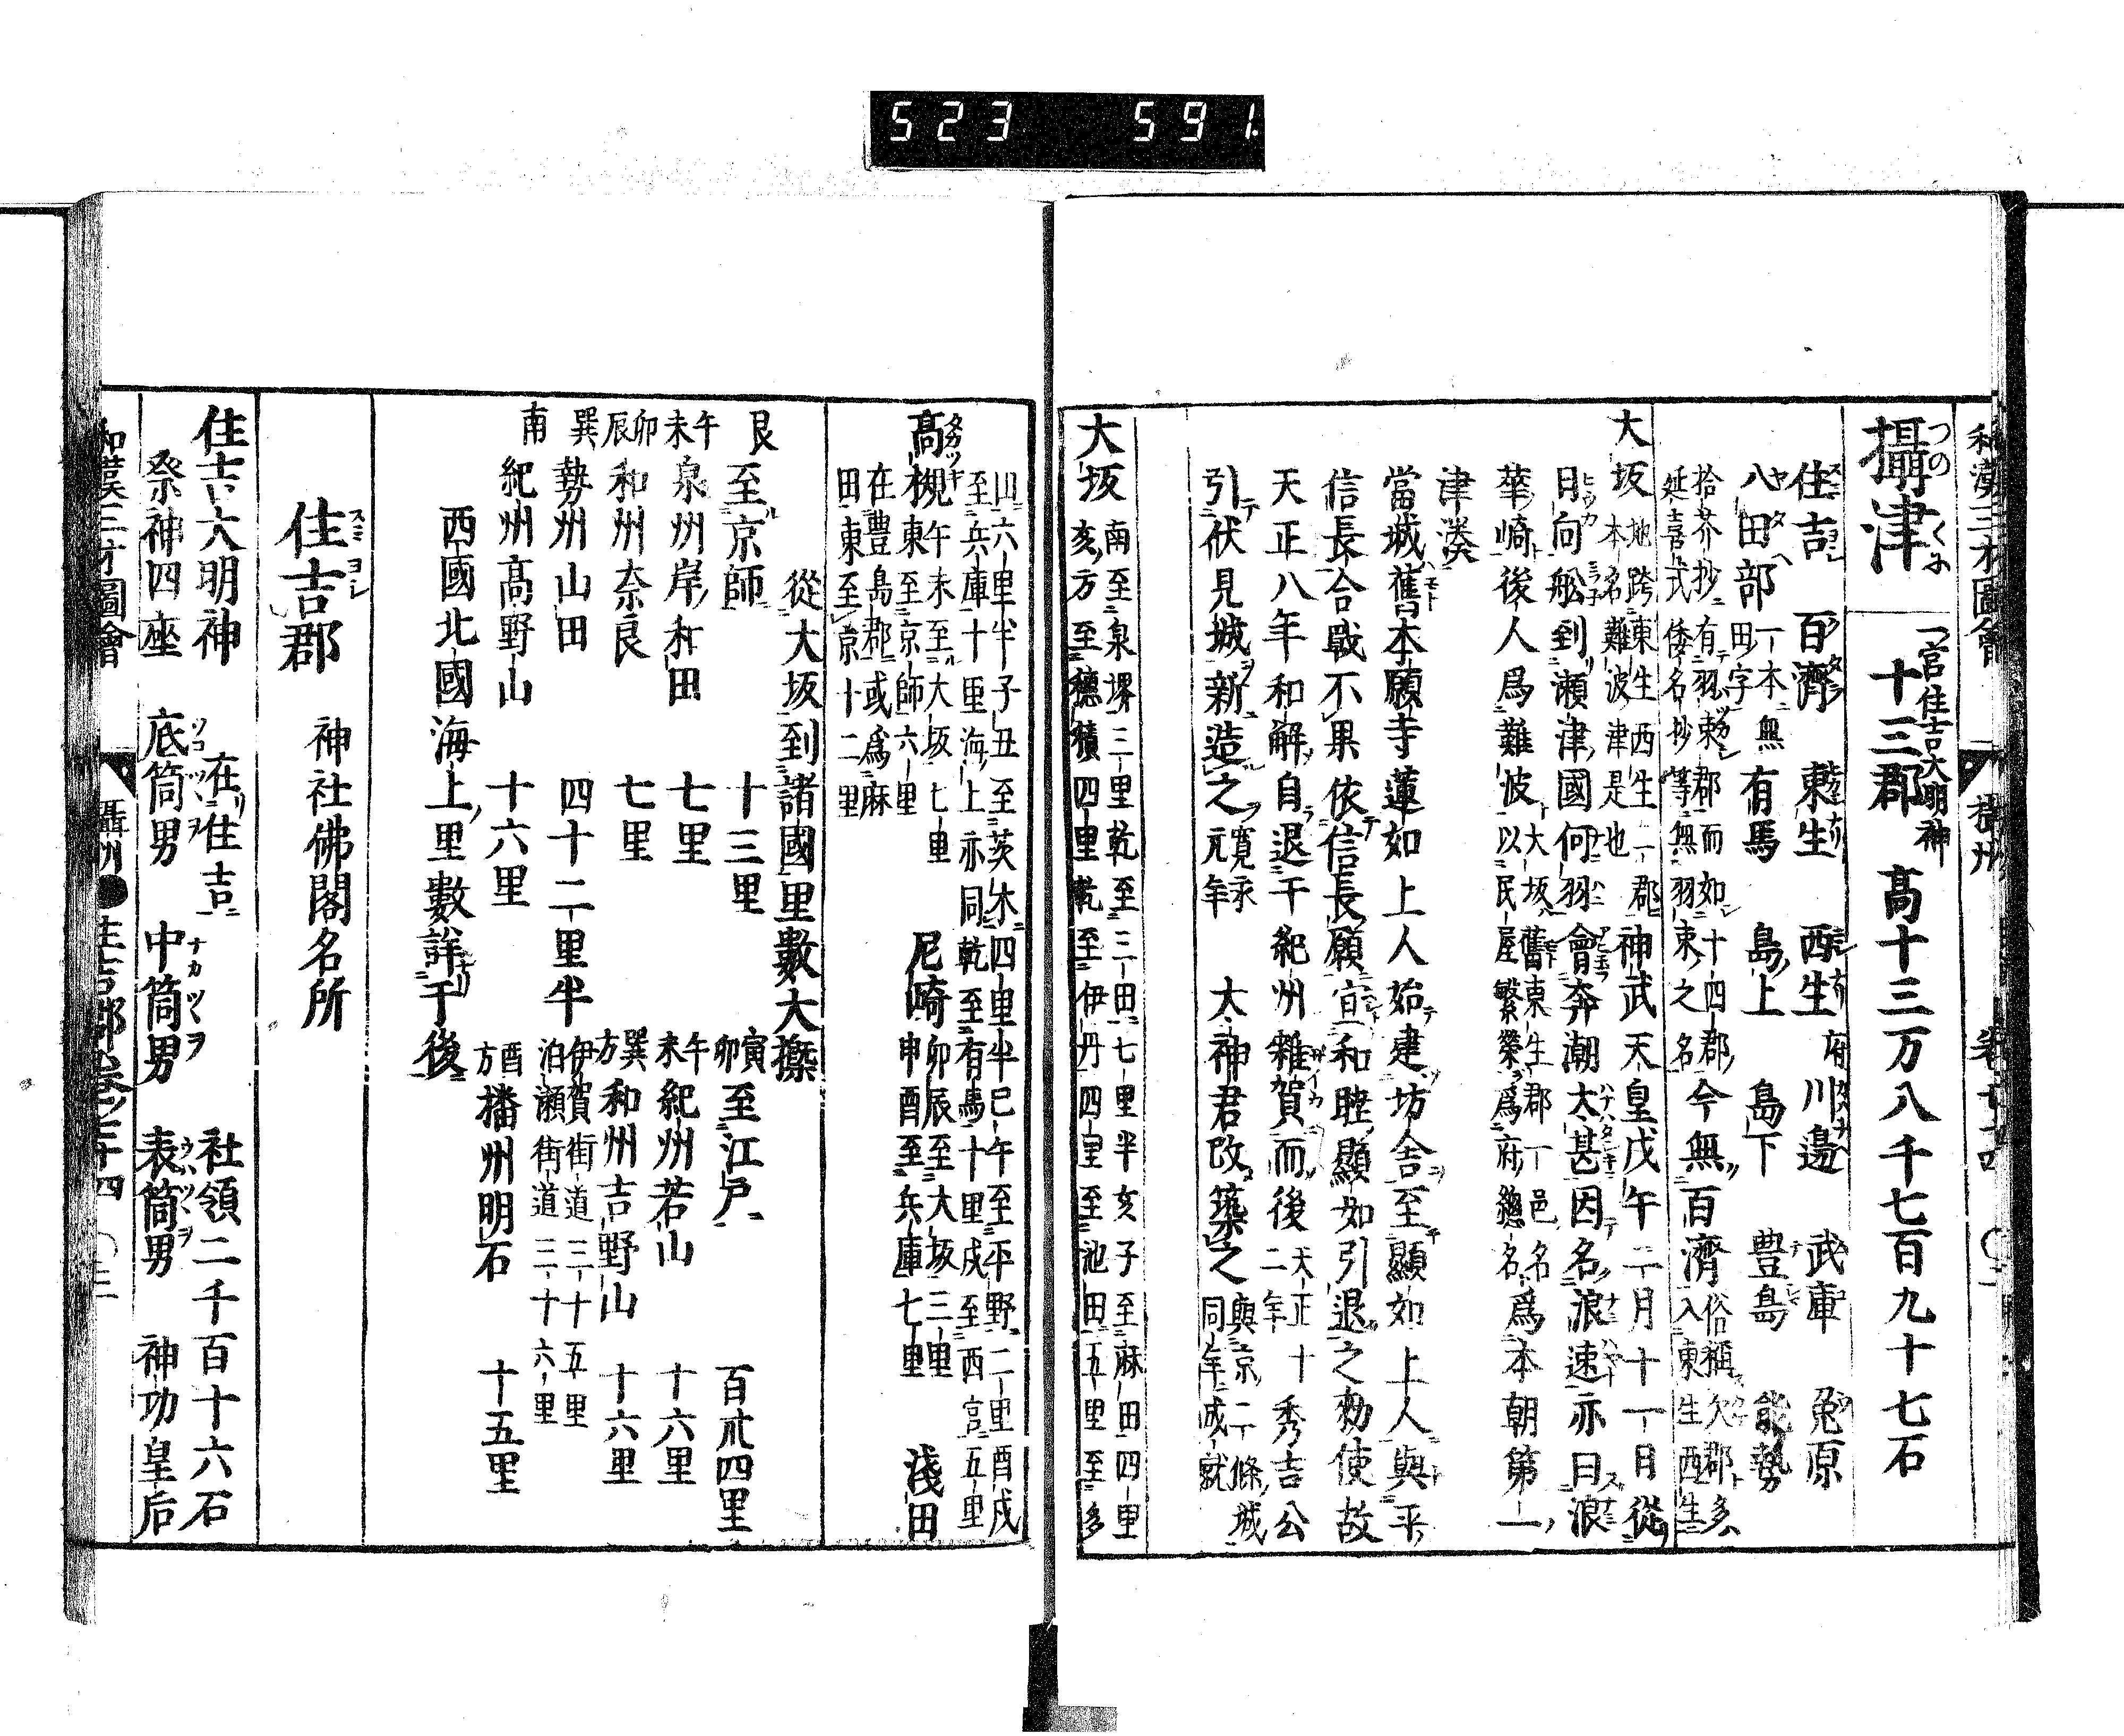 523 591
和漢三才圖會 攝州 卷七十四
攝津 つのくに 一宮住吉大明神
十三郡 高十三万八千七百九十七石
住吉 百濟 東生 西生 府 川邊 武庫 兎原
八田部 一本無田字 有馬 島上 島下 豊島 能勢
拾芥抄有羽束郡而如十四郡
延喜式倭名抄等無羽束之名
今無百濟 俗稱欠郡多入東生西生
大坂 地跨東生西生二郡
本名難波津是也
神武天皇戊午二月十一日從
日向舩到瀬津國何羽會奔潮大甚因名浪速亦曰浪
華﨑後人爲難波 大坂舊東生郡一邑名
以民屋繁榮爲府總名 爲本朝第一
津湊
當城舊本願寺蓮如上人始建坊舎至顯如上人與平
信長合戰不果依信長願宣和睦顯如引退之勅使故
天正八年和解自退于紀州雜賀而後 天正十二年 秀吉公
引伏見城新造之 寛永元年 大神君改築之 與京二條城
同年成就
大坂 南至泉堺三里乾至三田七里半亥子至麻田四里
亥方至穗積四里乾至伊丹四里至池田五里至多
田六里半子丑至茨木四里半巳午至平野二里酉戌
至兵庫十里海上亦同乾至有馬十里戌至西宮五里
高槻 午未至大坂七里
東至京師六里
尼﨑 卯辰至大坂三里
申酉至兵庫七里
淺田
在豊島郡或爲麻
田東至京十二里
從大坂到諸國里數大槩
艮 至京師 十三里 寅卯 至江戸 百卅四里
午未 泉州岸和田 七里 午未 紀州若山 十六里
卯辰 和州奈良 七里 巽方 和州吉野山 十六里
巽 勢州山田 四十二里半 伊賀街道三十五里
泊瀬街道三十六里
南 紀州高野山 十六里 酉方 播州明石 十五里
西國北國海上里數詳于後
住吉郡 スミヨシ 神社佛閣名所
住吉大明神 在住吉 社領二千百十六石
祭神四座 底筒男 中筒男 表筒男 神功皇后
和漢三才圖會 攝州 住吉郡 卷之七十四 〇二